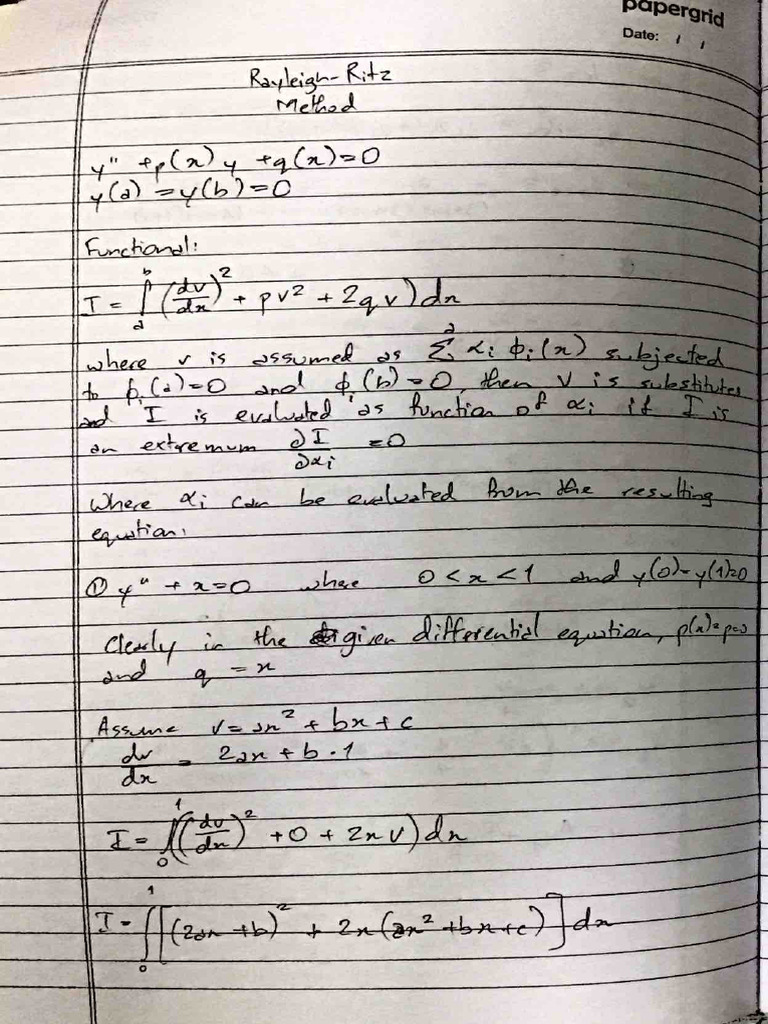 papergrid
Date: / /
Rayleigh-Ritz
Method
y" + p(x) y + q(x) = 0
y(a) = y(b) = 0
Functional:
I = ∫ₐᵇ (dv/dx)² + pv² + 2qv) dx
where v is assumed as Σ² αi ϕi(x) subjected
to ϕi(a)=0 and ϕi(b)=0, then v is substitutes
and I is evaluated as function of αi if I is
an exteremum ∂I/∂αi = 0
Where αi can be evaluated from the resulting
equation.
① y" + x = 0 where 0 < x < 1 and y(0) = y(1) = 0
Clearly in the given differential equation, p(x) = p = 0
and q = x
Assume v = ax² + bx + c
dv/dx = 2ax + b · 1
I = ∫₀¹ ((dv/dx)² + 0 + 2xv) dx
I = ∫₀¹ [(2ax + b)² + 2x(ax² + bx + c)] dx